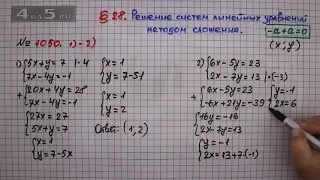 4 on 5
§ 28. Решение систем линейных уравнений
методом сложения.
-a+a=0
№ 1050. 1)-2)
(x; y)
1) {5x+y=7 |·4
{7x-4y=-1
+ {20x+4y=28
{7x-4y=-1
{27x=27
{5x+y=7
{x=1
{y=7-5x
{x=1
{y=7-5·1
{x=1
{y=2
Ответ: (1; 2)
2) {6x-5y=23
{2x-7y=13 |·(-3)
+ {6x-5y=23
{-6x+21y=-39
{16y=-16
{2x-7y=13
{y=-1
{2x=13+7·(-1)
{y=-1
{2x=6